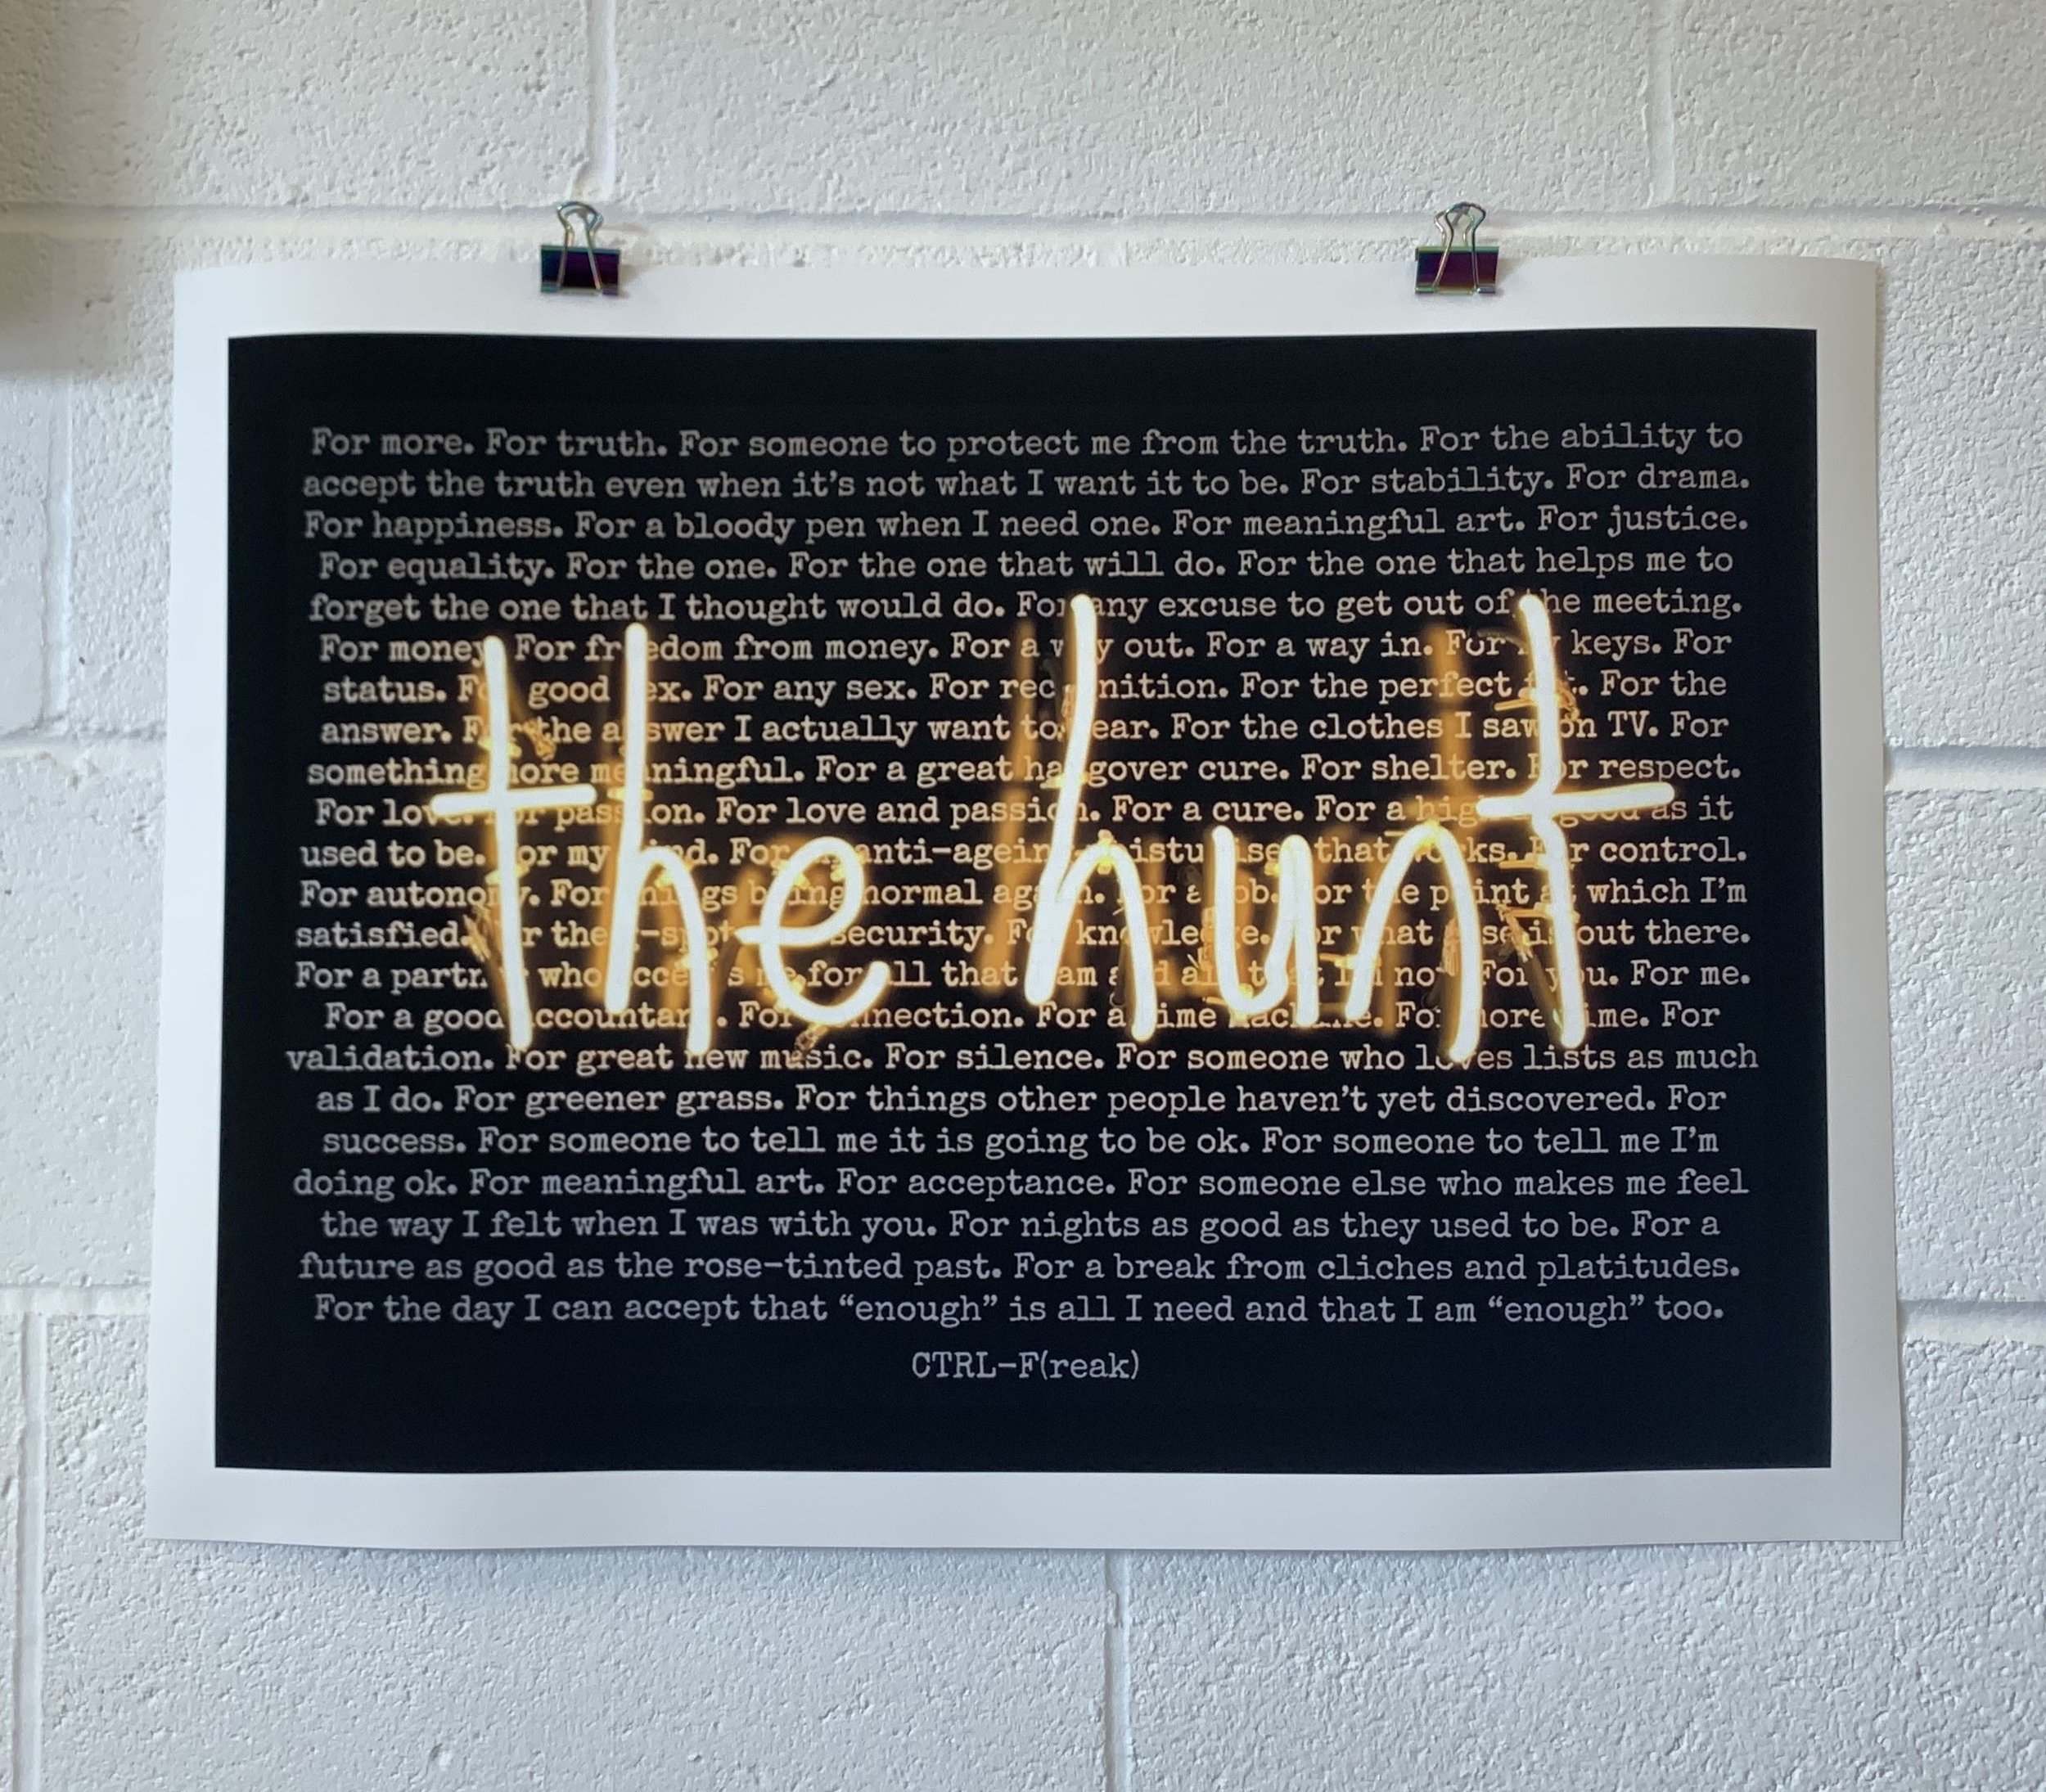 For more. For truth. For someone to protect me from the truth. For the ability to
accept the truth even when it's not what I want it to be. For stability. For drama.
For happiness. For a bloody pen when I need one. For meaningful art. For justice.
For equality. For the one. For the one that will do. For the one that helps me to
forget the one that I thought would do. For any excuse to get out of the meeting.
For money. For freedom from money. For a way out. For a way in. For my keys. For
status. For good sex. For any sex. For recognition. For the perfect For the
answer. For the answer I actually want to hear. For the clothes I saw on TV. For
something more meaningful. For a great hangover cure. For shelter. For respect.
For love. For passion. For love and passion. For a cure. For a high as good as it
used to be. For my mind. For an anti-ageing moisturiser that works. For control.
For autonomy. For things being normal again. For a job. For the point at which I'm
satisfied. For the g-spot. For security. For knowledge. For what else is out there.
For a partner who accepts me for all that I am and all that I'm not. For you. For me.
For a good accountant. For connection. For a time machine. For more time. For
validation. For great new music. For silence. For someone who loves lists as much
as I do. For greener grass. For things other people haven't yet discovered. For
success. For someone to tell me it is going to be ok. For someone to tell me I'm
doing ok. For meaningful art. For acceptance. For someone else who makes me feel
the way I felt when I was with you. For nights as good as they used to be. For a
future as good as the rose-tinted past. For a break from cliches and platitudes.
For the day I can accept that “enough” is all I need and that I am “enough” too.
CTRL-F(reak)
the hunt